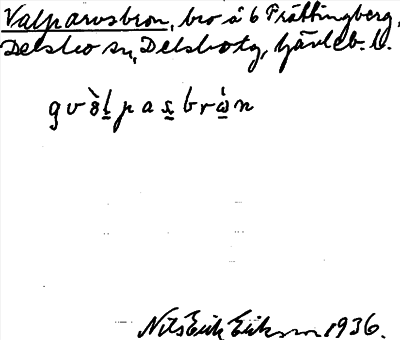 Valparvsbron, bro å 6 Prättingberg,
Delsbo sn, Delsbo tg, Gävleb. l.
gvòlpasbrón
Nils Erik Eriksson 1936.